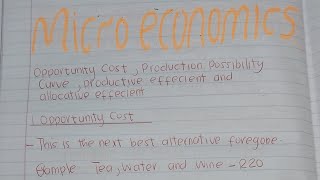 Microeconomics
Opportunity Cost, Production Possibility
Curve, productive effecient and
allocative effecient
Opportunity Cost
- This is the next best alternative foregone.
Example Tea, Water and Wine - R20